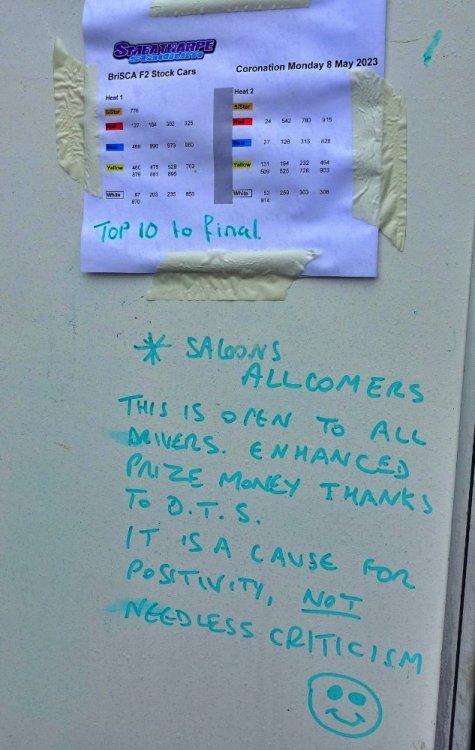 SMEATHARPE
STADIUM
BriSCA F2 Stock Cars
Coronation Monday 8 May 2023
Heat 1
Heat 2
S/Star 776
S/Star
Red 127 184 302 325
Red 24 542 780 915
Blue
Blue 27 126 315 828
Yellow 460 475 528 762
876 881 895
Yellow 131 194 232 464
509 525 726 903
White 87 203 235 855
870
White 53 259 303 306
914
TOP 10 to final
* SALOONS
ALLCOMERS
THIS IS OPEN TO ALL
DRIVERS. ENHANCED
PRIZE MONEY THANKS
TO D.T.S.
IT IS A CAUSE FOR
POSITIVITY, NOT
NEEDLESS CRITICISM